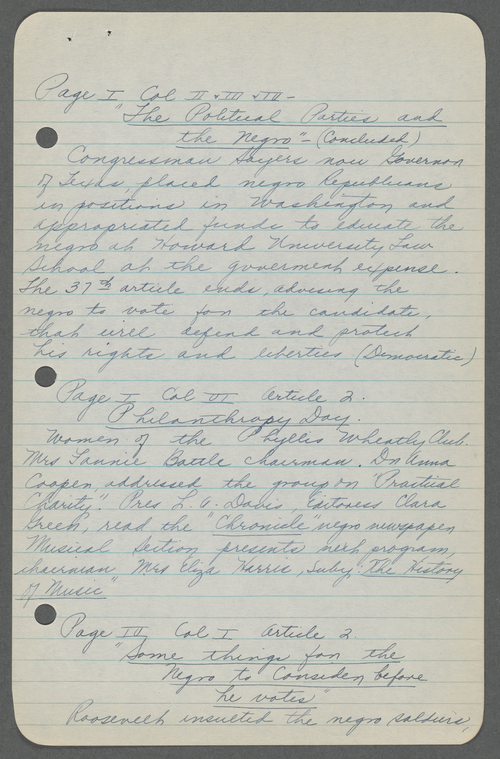 Page I Col II + III + IV -
"The Political Parties and
the Negro" - (Concluded)
Congressman Sayers now Governor
of Texas, placed negro Republicans
in positions in Washington and
appropriated funds to educate the
negro at Howard University Law
School at the goverment expense.
The 37th article ends, advising the
negro to vote for the candidate,
that will defend and protect
his rights and liberties (Democratic)
Page I Col VI Article 2.
Philanthropy Day.
Women of the Phyllis Wheatly Club.
Mrs Fannie Battle chairman. Dr Anna
Cooper, addressed the group on "Practical
Charity". Pres L. A. Davis, Editoress Clara
Green, read the "Chronicle" negro newspaper
Musical Section presents next program,
chairman Mrs Eliza Harris, Subj. "The History
of Music"
Page III Col I Article 2
"Some things for the
Negro to Consider before
he votes"
Roosevelt insulted the negro soldiers,